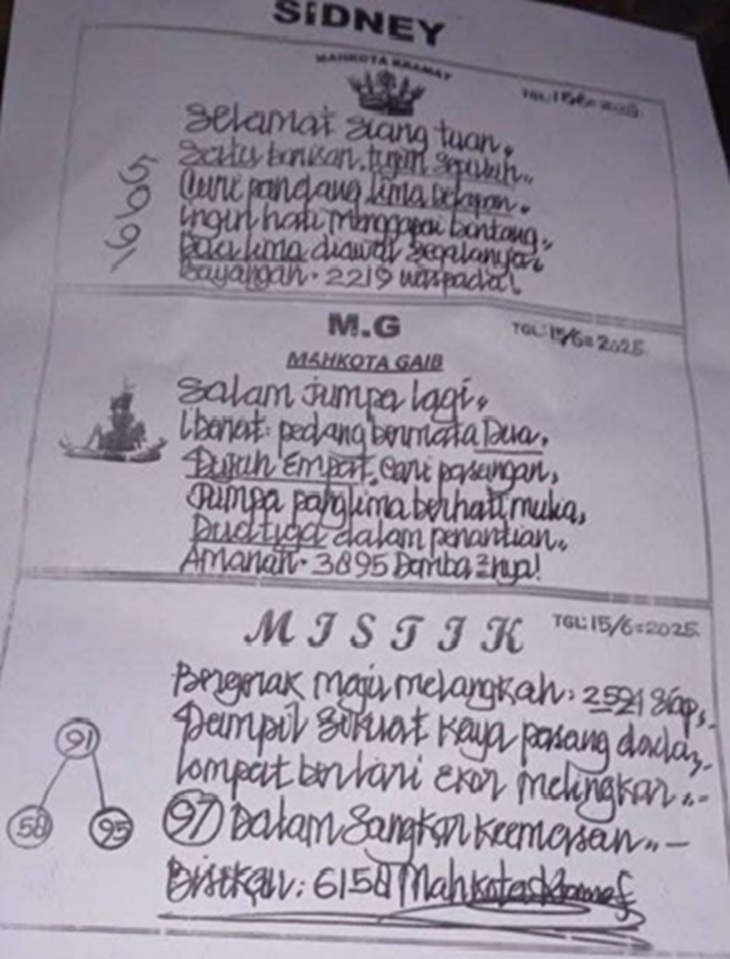 SiDNEY
MAHKOTA KRAMAT
TGL: 15/6=2025
Selamat Siang tuan,
Satu barisan, tujuh sepuluh,,
Curi pandang lima delapan.
Ingin hati menggapai bintang,,
Dua lima diawal segalanya,
Bayangan. 2219 waspada!
5991
M.G
TGL: 15/6=2025
MAHKOTA GAIB
Salam Jumpa lagi,
Ibarat: pedang bermata Dua,
Tujuh Empat, cari pasangan,
Jumpa panglima berhati mulia,
Dua tiga dalam penantian.
Amanah. 3895 Damba2nya!
MISTIK
TGL: 15/6=2025
Bergerak maju melangkah: 2521 Siap,
Tampil Sekuat Kaya pasang dada,
Lompat berlari Ekor melingkar
91
58 95
97 Dalam Sangkar Keemasan,, -
Bisikan: 6158 Mahkota